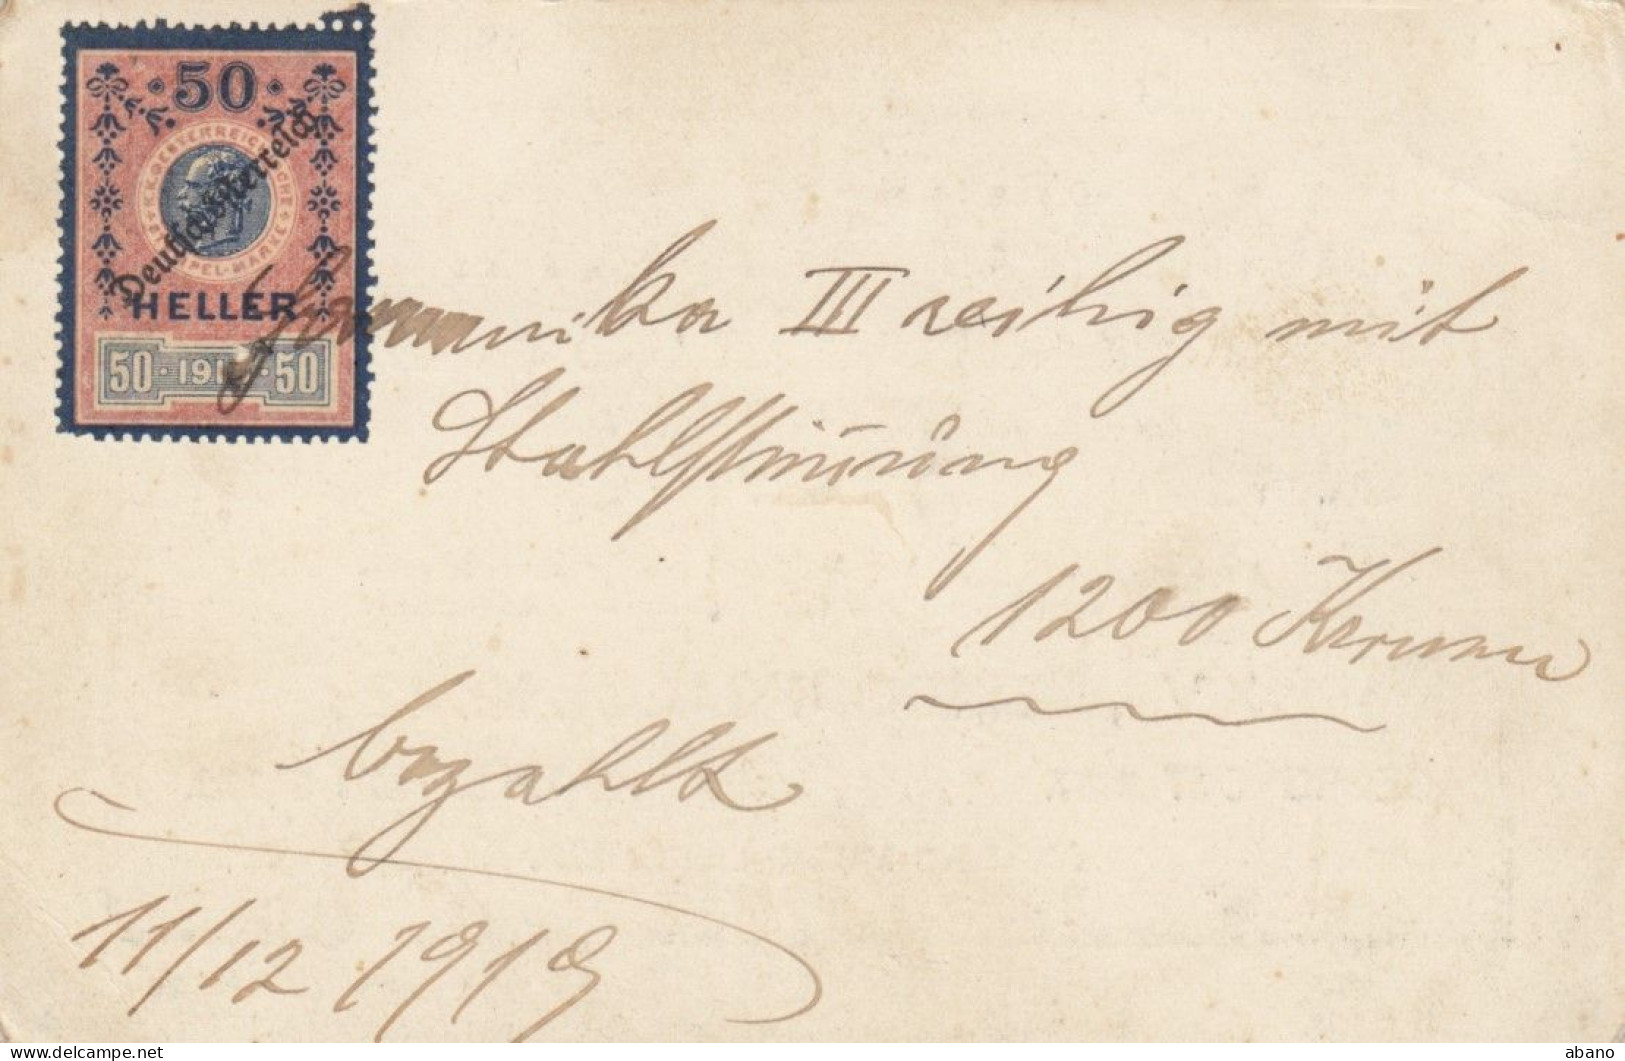 50
K.K. OESTERREICHISCHE
STEMPEL-MARKE
Deutschösterreich
HELLER
50 · 191 · 50
Harmonika III reihig mit
Stahlstimmung
1200 Kronen
bezahlt
11/12 1919
abano